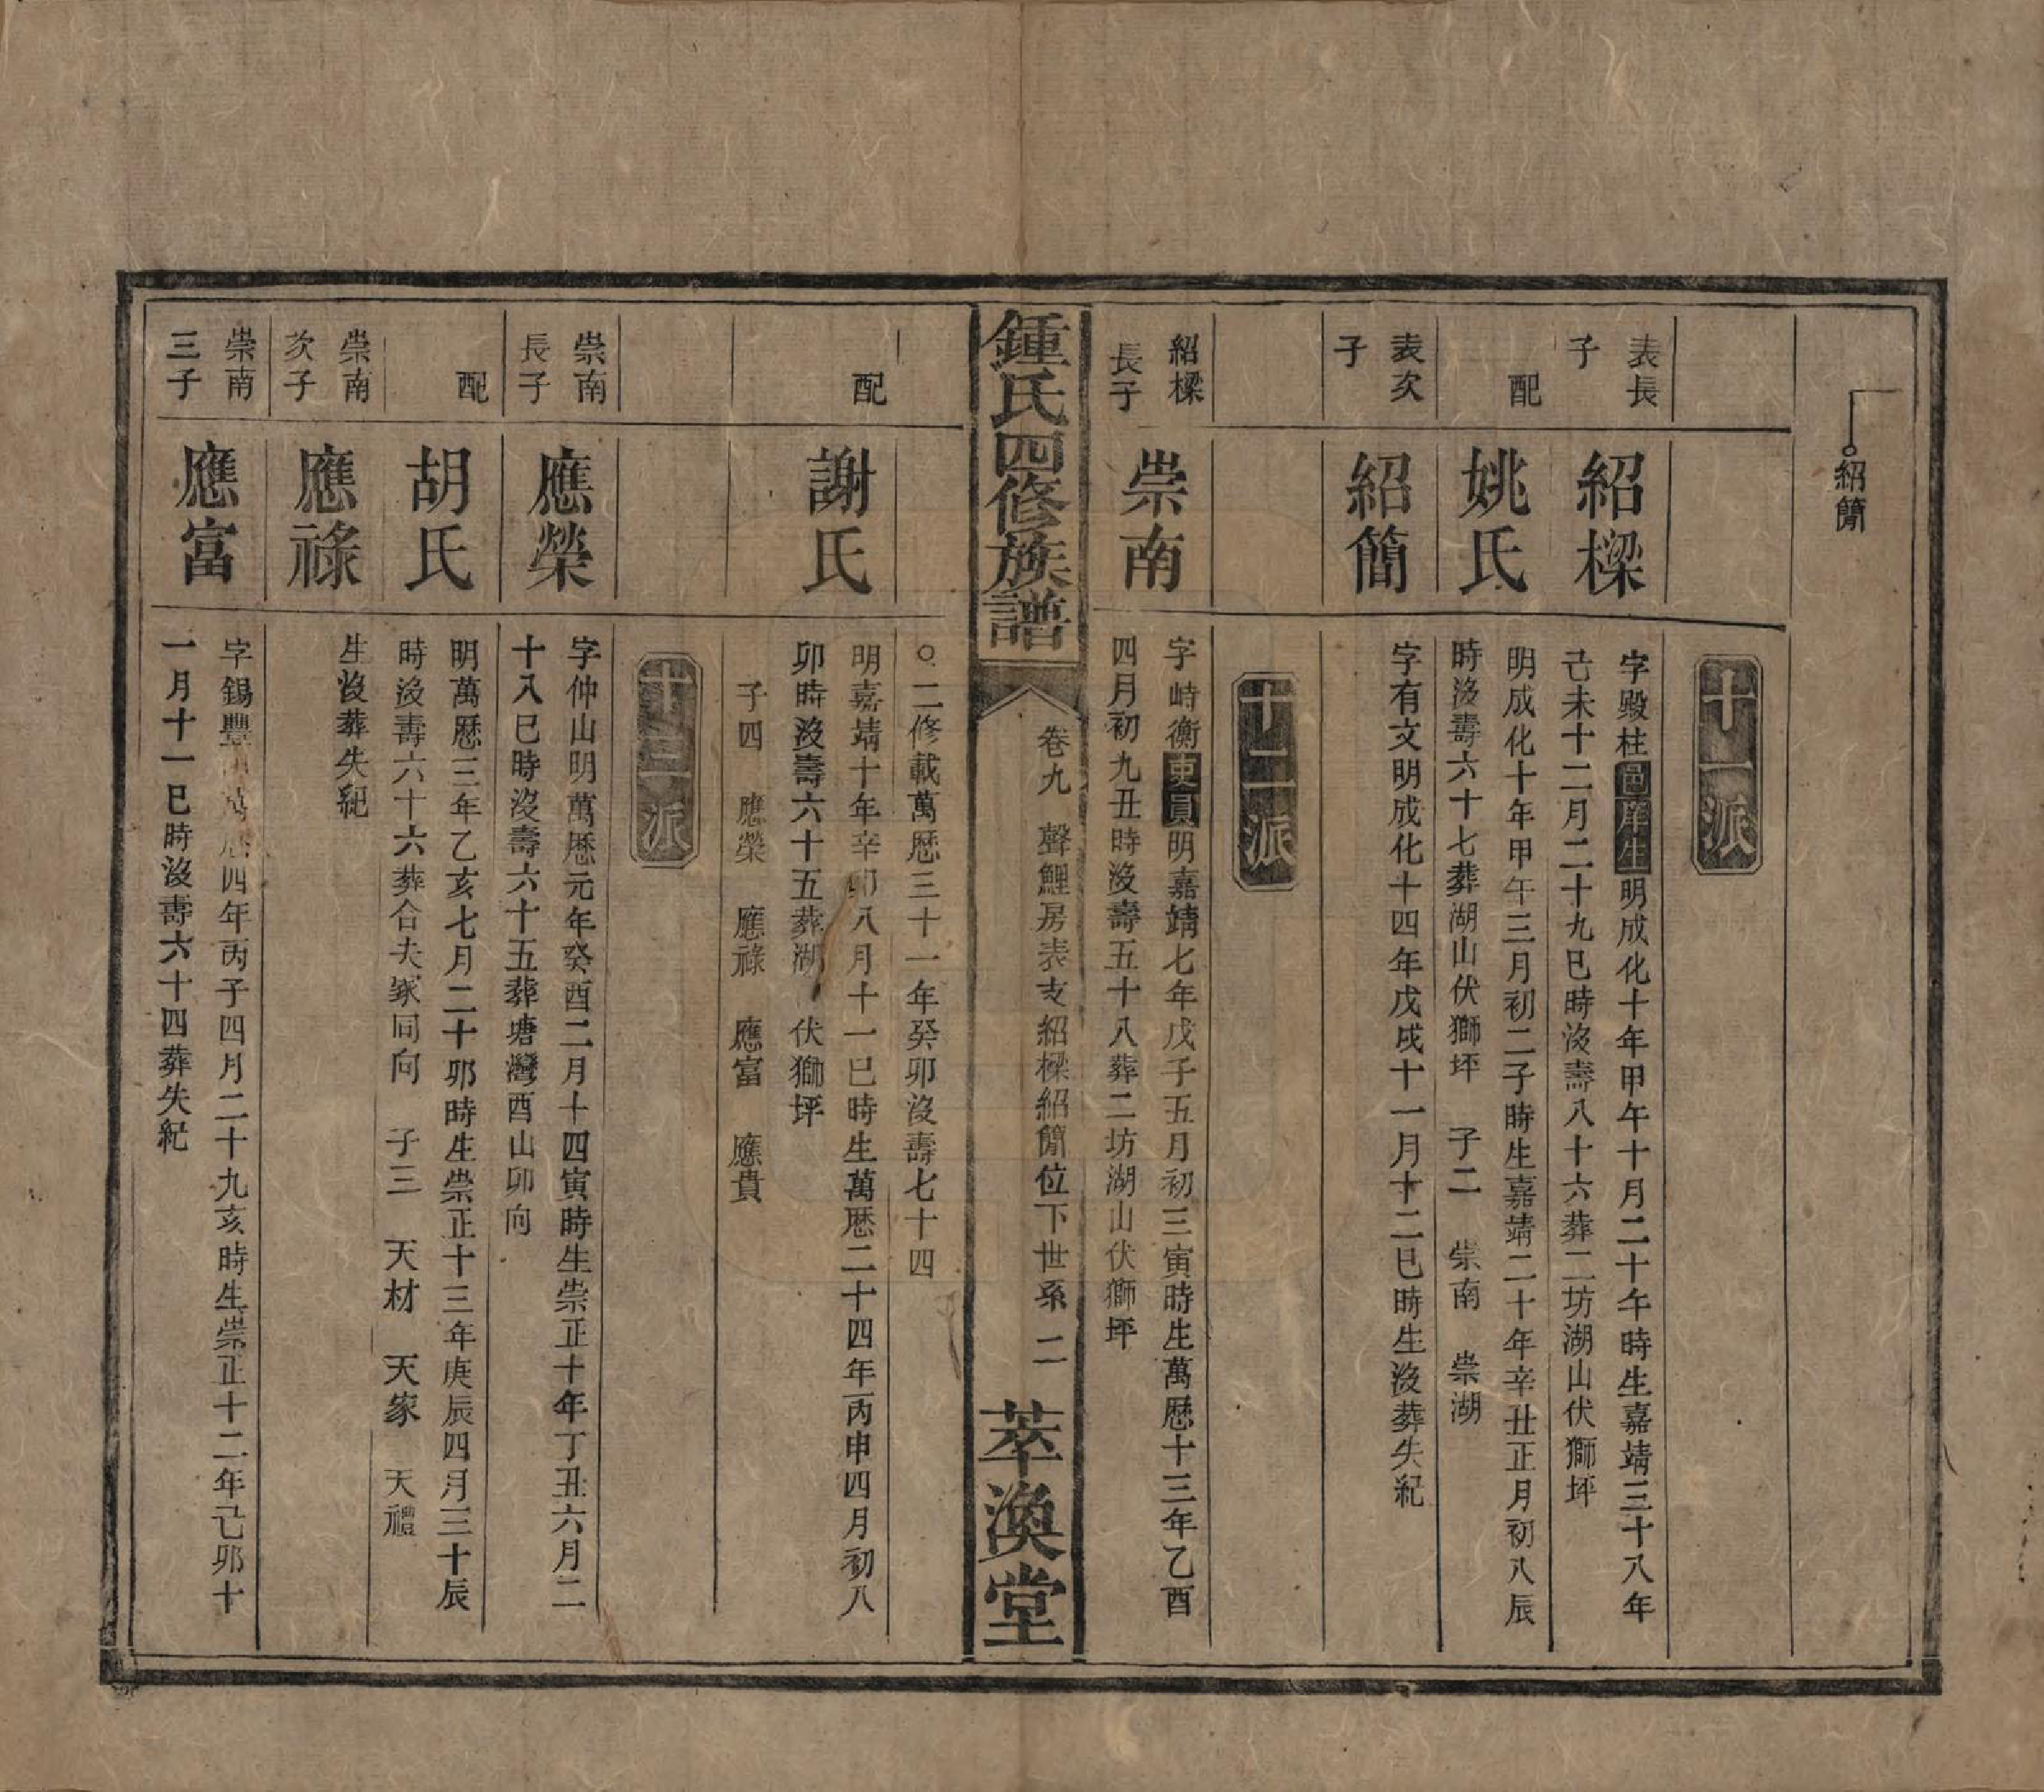 紹簡
十一派
表長子
紹樑
字毀柱邑庠生明成化十年甲午十月二十午時生嘉靖三十八年
己未十二月二十九巳時沒壽八十六葬二坊湖山伏獅坪
配
姚氏
明成化十年甲午三月初二子時生嘉靖二十年辛丑正月初八辰
時沒壽六十七葬湖山伏獅坪 子二 崇南 崇湖
表次子
紹簡
字有文明成化十四年戊戌十一月十二巳時生沒葬失紀
十二派
紹樑長子
崇南
字峙衡吏員明嘉靖七年戊子五月初三寅時生萬歷十三年乙酉
四月初九丑時沒壽五十八葬二坊湖山伏獅坪
鍾氏四修族譜
卷九 聲鯉房表支紹樑紹簡位下世系 二
萃渙堂
○二修載萬歷三十一年癸卯沒壽七十四
配
謝氏
明嘉靖十年辛卯八月十一巳時生萬歷二十四年丙申四月初八
卯時沒壽六十五葬湖 伏獅坪
子四 應榮 應祿 應富 應貴
十三派
崇南長子
應榮
字仲山明萬歷元年癸酉二月十四寅時生崇正十年丁丑六月二
十八巳時沒壽六十五葬塘灣酉山卯向
配
胡氏
明萬歷三年乙亥七月二十卯時生崇正十三年庚辰四月三十辰
時沒壽六十六葬合夫冢同向 子三 天材 天家 天禮
崇南次子
應祿
生沒葬失紀
崇南三子
應富
字錫豐明萬歷四年丙子四月二十九亥時生崇正十二年己卯十
一月十一巳時沒壽六十四葬失紀